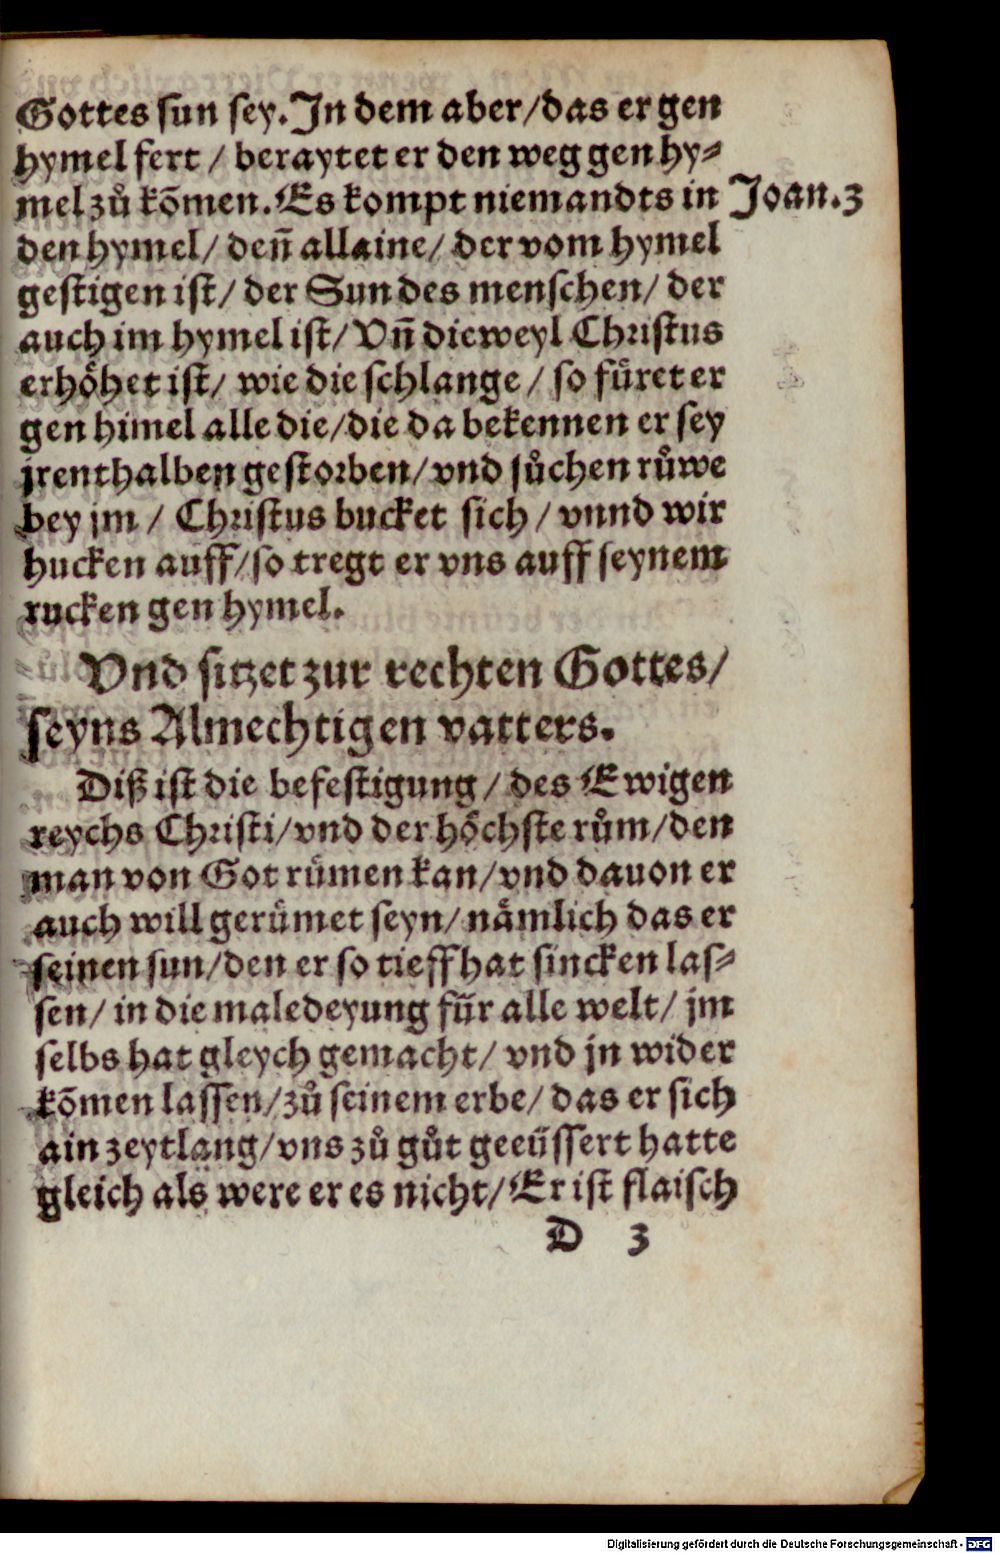 Gottes sun sey. Jn dem aber/das er gen
hymel fert / beraytet er den weg gen hy⸗
mel zů kõmen. Es kompt niemandts in
Joan. 3
den hymel/ deñ allaine/ der vom hymel
gestigen ist/ der Sun des menschen/ der
auch im hymel ist/ Vñ dieweyl Christus
erhöhet ist/ wie die schlange / so füret er
gen himel alle die/die da bekennen er sey
jrenthalben gestorben/vnd sůchen růwe
bey jm / Christus bucket sich / vnnd wir
hucken auff/so tregt er vns auff seynem
rucken gen hymel.
Vnd sitzet zur rechten Gottes/
seyns Almechtigen vatters.
Diß ist die befestigung / des Ewigen
reychs Christi/vnd der höchste rům/den
man von Got rümen kan/vnd dauon er
auch will gerümet seyn/ nämlich das er
seinen sun/den er so tieff hat sincken las⸗
sen/ in die maledeyung für alle welt/ jm
selbs hat gleych gemacht/ vnd jn wider
kõmen lassen/zů seinem erbe/ das er sich
ain zeytlang/vns zů gůt geeüssert hatte
gleich als were er es nicht/ Er ist flaisch
D 3
Digitalisierung gefördert durch die Deutsche Forschungsgemeinschaft - DFG